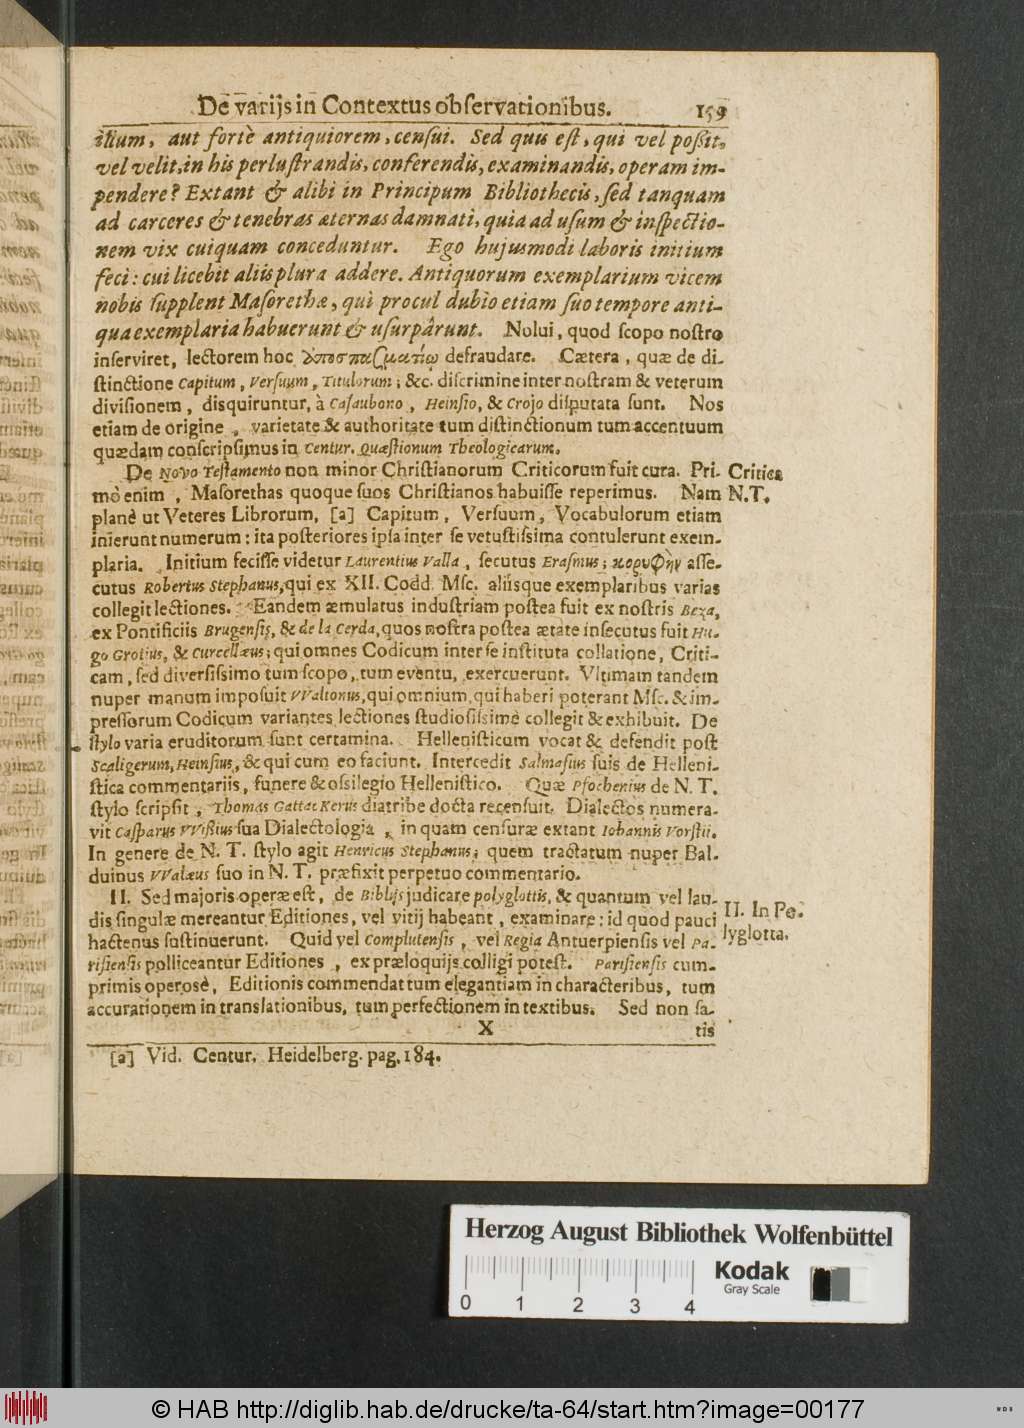 De varijs in Contextus observationibus. 159
itium, aut fortè antiquiorem, censui. Sed quis est, qui vel poßit,
vel velit, in his perlustrandis, conferendis, examinandis, operam im-
pendere? Extant & alibi in Principum Bibliothecis, sed tanquam
ad carceres & tenebras æternas damnati, quia ad usum & inspectio-
nem vix cuiquam conceduntur. Ego hujusmodi laboris initium
feci: cui licebit aliis plura addere. Antiquorum exemplarium vicem
nobis supplent Masorethæ, qui procul dubio etiam suo tempore anti-
qua exemplaria habuerunt & usurpârunt. Nolui, quod scopo nostro
inserviret, lectorem hoc defraudare. Cætera, quæ de di-
stinctione Capitum, Versuum, Titulorum; &c. discrimine inter nostram & veterum
divisionem, disquiruntur, à Casaubono, Heinsio, & Crojo disputata sunt. Nos
etiam de origine, varietate & authoritate tum distinctionum tum accentuum
quædam conscripsimus in Centur. Quæstionum Theologicarum.
De Novo Testamento non minor Christianorum Criticorum fuit cura. Pri- Critica
mò enim, Masorethas quoque suos Christianos habuisse reperimus. Nam N.T.
planè ut Veteres Librorum, [a] Capitum, Versuum, Vocabulorum etiam
inierunt numerum: ita posteriores ipsa inter se vetustissima contulerunt exem-
plaria. Initium fecisse videtur Laurentius Valla, secutus Erasmus; κορυφὴν asse-
cutus Robertus Stephanus, qui ex XII. Codd. Msc. aliisque exemplaribus varias
collegit lectiones. Eandem æmulatus industriam postea fuit ex nostris Beza,
ex Pontificiis Brugensis, & de la Cerda, quos nostra postea ætate insecutus fuit Hu-
go Grotius, & Curcellæus; qui omnes Codicum inter se instituta collatione, Criti-
cam, sed diversissimo tum scopo, tum eventu, exercuerunt. Ultimam tandem
nuper manum imposuit VValtonus, qui omnium, qui haberi poterant Msc. & im-
pressorum Codicum variantes lectiones studiosissimè collegit & exhibuit. De
stylo varia eruditorum sunt certamina. Hellenisticum vocat & defendit post
Scaligerum, Heinsius, & qui cum eo faciunt. Intercedit Salmasius suis de Helleni-
stica commentariis, funere & ossilegio Hellenistico. Quæ Pfochenius de N. T.
stylo scripsit, Thomas Gattackerus diatribe docta recensuit. Dialectos numera-
vit Casparus VVißius sua Dialectologia, in quam censuræ extant Iohannis Vorstii.
In genere de N. T. stylo agit Henricus Stephanus; quem tractatum nuper Bal-
duinus VValæus suo in N. T. præfixit perpetuo commentario.
II. Sed majoris operæ est, de Biblijs judicare polyglottis, & quantum vel lau- II. In Po-
dis singulæ mereantur Editiones, vel vitij habeant, examinare: id quod pauci lyglotta.
hactenus sustinuerunt. Quid vel Complutensis, vel Regia Antuerpiensis vel Pa-
risiensis polliceantur Editiones, ex præloquijs colligi potest. Parisiensis cum-
primis operosè, Editionis commendat tum elegantiam in characteribus, tum
accurationem in translationibus, tum perfectionem in textibus. Sed non sa-
X tis
[a] Vid. Centur. Heidelberg. pag. 184.
Herzog August Bibliothek Wolfenbüttel
Kodak
Gray Scale
0 1 2 3 4
© HAB http://diglib.hab.de/drucke/ta-64/start.htm?image=00177